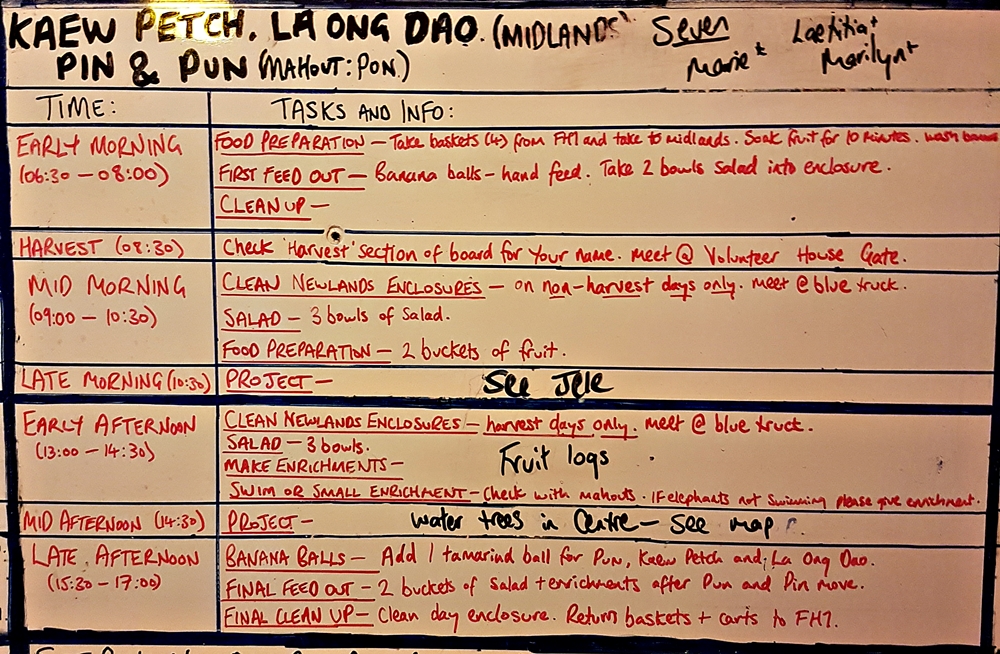 KAEW PETCH. LA ONG DAO. (MIDLANDS) Seven Laetitia+
PIN & PUN (MAHOUT: PON.) Marie* Marilyn+
TIME: TASKS AND INFO:
EARLY MORNING FOOD PREPARATION – Take baskets (4) from FH1 and take to midlands. Soak fruit for 10 minutes. wash
(06:30 – 08:00) FIRST FEED OUT – Banana balls – hand feed. Take 2 bowls Salad into enclosure.
CLEAN UP –
HARVEST (08:30) Check 'Harvest' section of board for your name. meet @ Volunteer House Gate.
MID MORNING CLEAN NEWLANDS ENCLOSURES – on non-harvest days only. meet @ blue truck.
(09:00 – 10:30) SALAD – 3 bowls of salad.
FOOD PREPARATION – 2 buckets of fruit.
LATE MORNING (10:30) PROJECT – See Jele
EARLY AFTERNOON CLEAN NEWLANDS ENCLOSURES – harvest days only. meet @ blue truck.
(13:00 – 14:30) SALAD – 3 bowls.
MAKE ENRICHMENTS – Fruit logs
SWIM OR SMALL ENRICHMENT – Check with mahouts. IF elephants not swimming please give enrichment.
MID AFTERNOON (14:30) PROJECT – water trees in Centre – See map
LATE AFTERNOON BANANA BALLS – Add 1 tamarind ball for Pun, Kaew Petch and La Ong Dao.
(15:30 – 17:00) FINAL FEED OUT – 2 buckets of salad + enrichments after Pun and Pin move.
FINAL CLEAN UP – Clean day enclosure. Return baskets + carts to FH1.